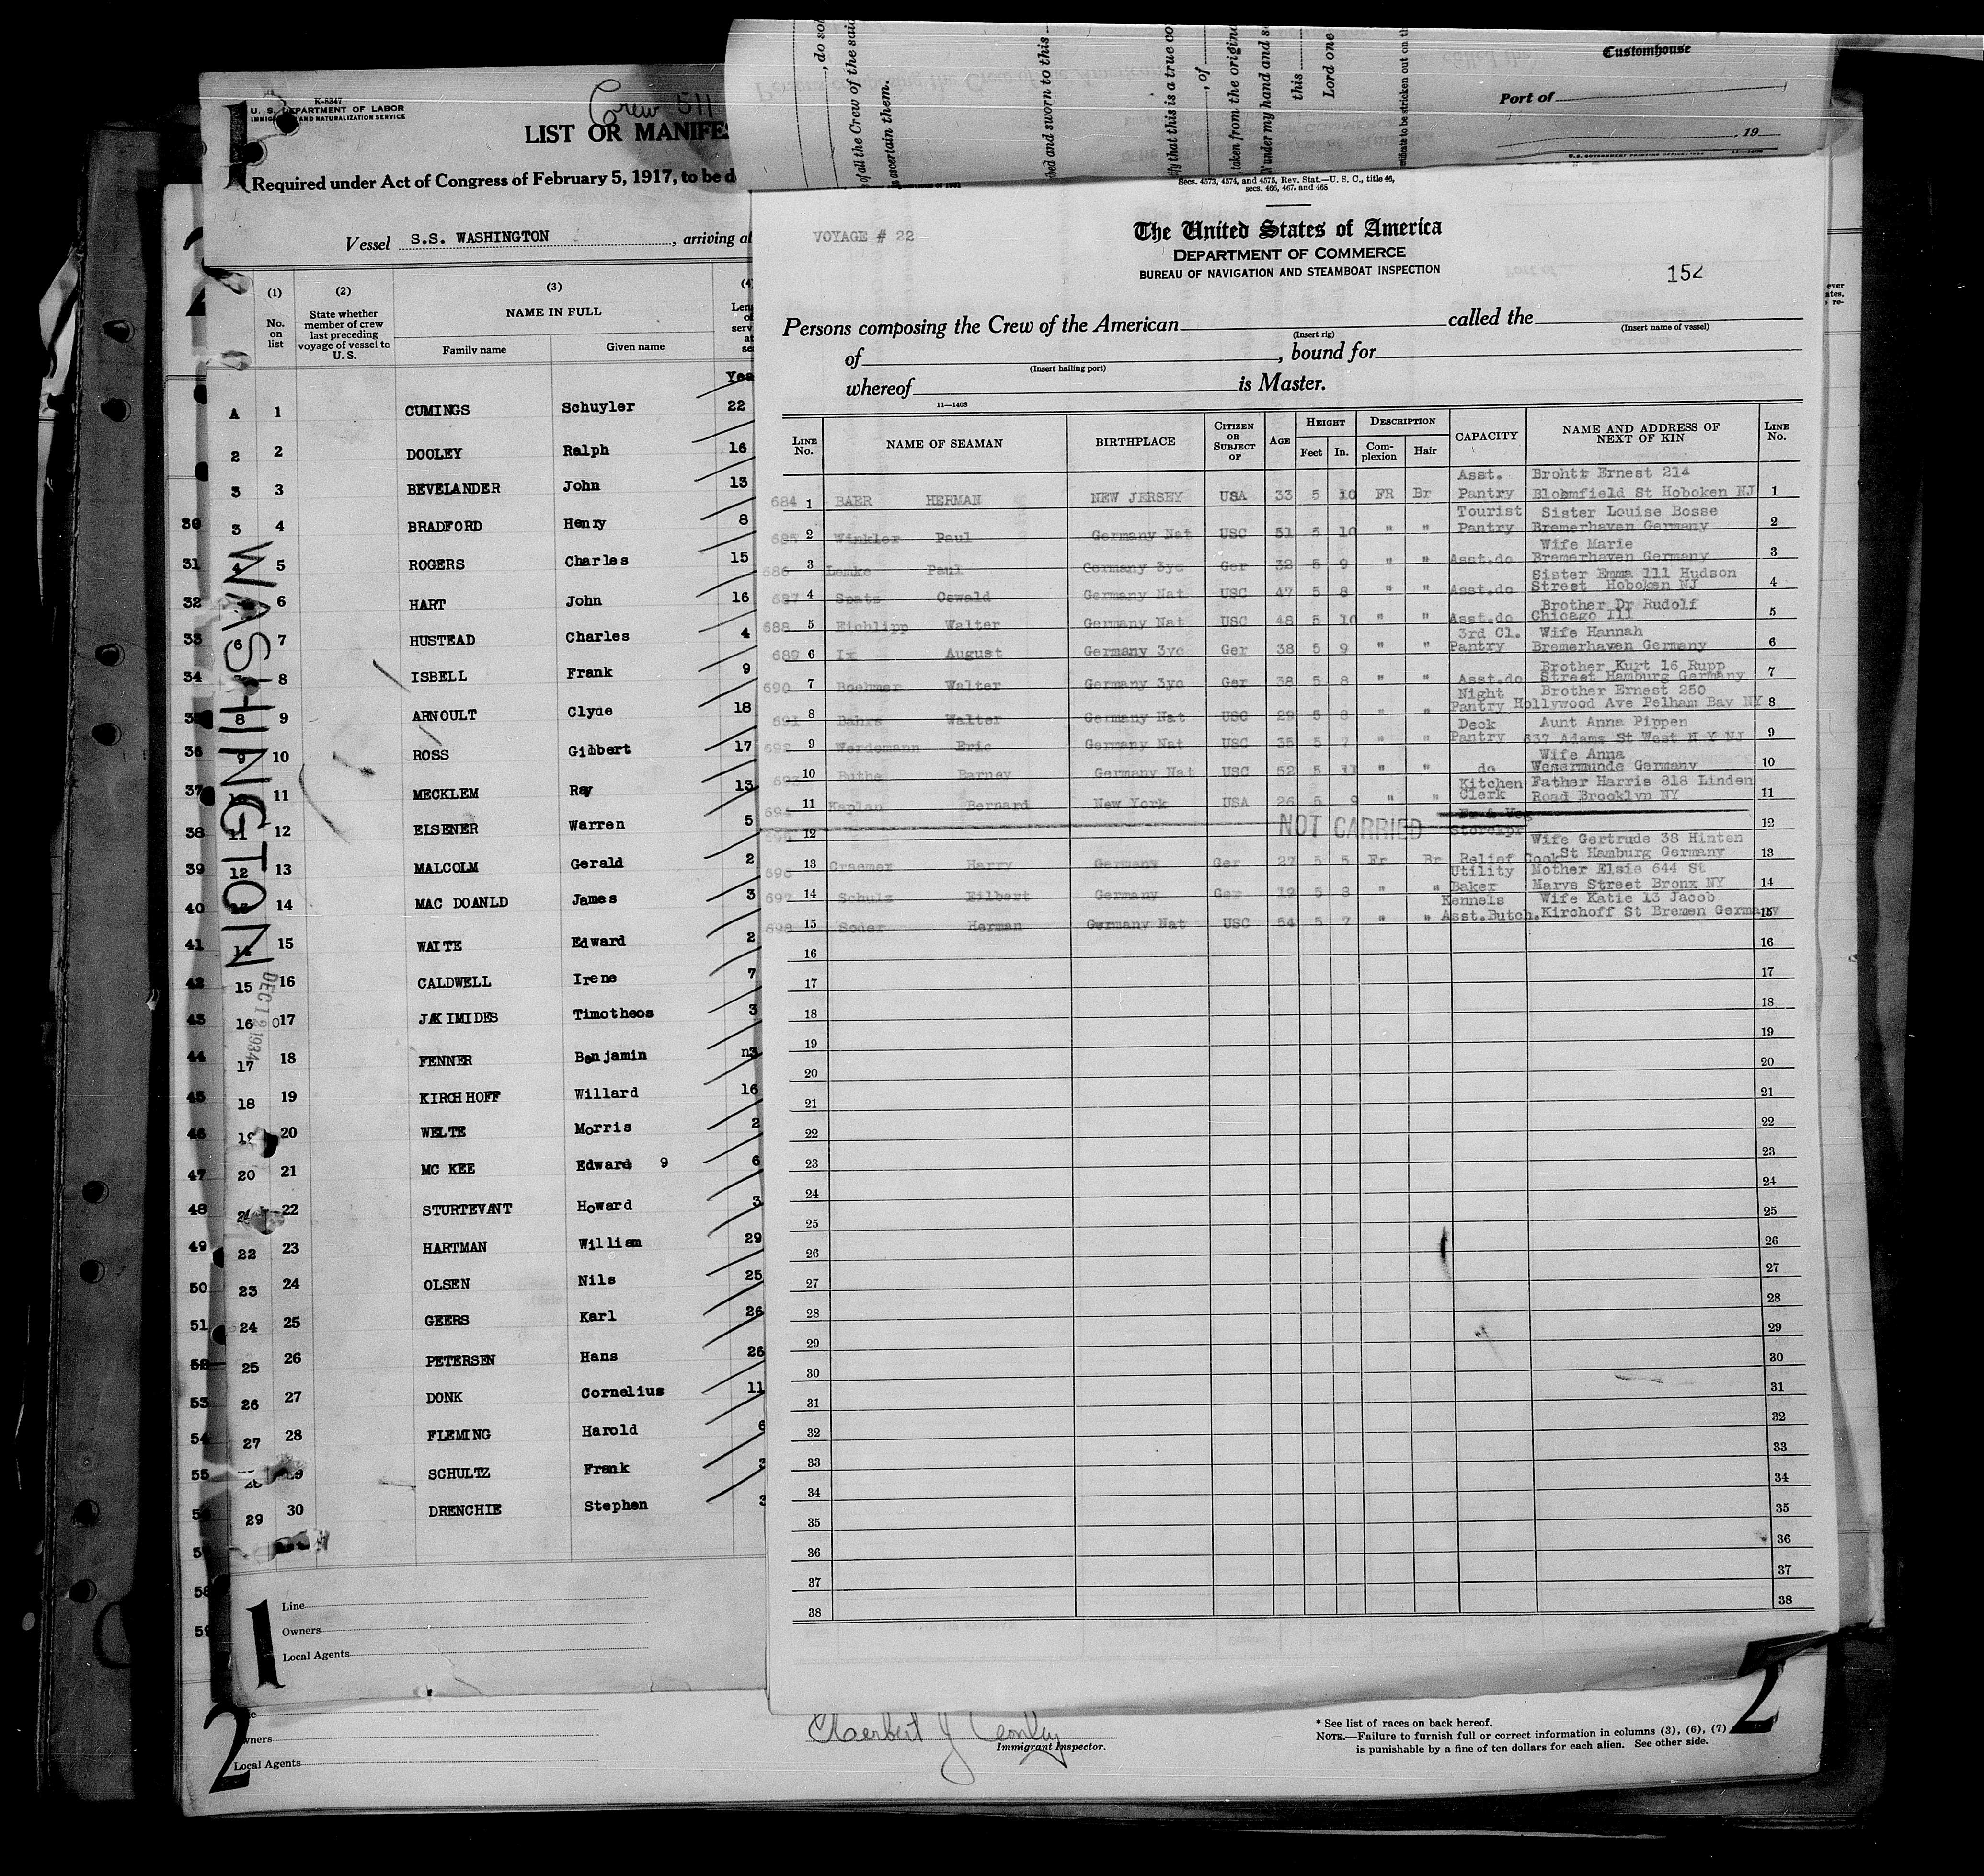 K-8347
U. S. DEPARTMENT OF LABOR
IMMIGRATION AND NATURALIZATION SERVICE
Crew 511
LIST OR MANIFES
Required under Act of Congress of February 5, 1917, to be d
Vessel S.S. WASHINGTON, arriving at
(1) (2) (3) (4)
No. on list
State whether member of crew last preceding voyage of vessel to U. S.
NAME IN FULL
Family name Given name
Yea
A 1 CUMINGS Schuyler 22
2 2 DOOLEY Ralph 16
3 3 BEVELANDER John 13
3 4 BRADFORD Henry 8
4 5 ROGERS Charles 15
6 HART John 16
6 7 HUSTEAD Charles 4
8 ISBELL Frank 9
8 9 ARNOULT Clyde 18
9 10 ROSS Gilbert 17
11 MECKLEM Ray 13
11 12 EISENER Warren 5
12 13 MALCOLM Gerald 2
14 MAC DOANLD James 3
15 WAITE Edward 2
15 16 CALDWELL Irene 7
16 17 JAKIMIDES Timotheos 3
17 18 FENNER Benjamin
18 19 KIRCHHOFF Willard 16
19 20 WELTE Morris 2
20 21 MC KEE Edward 9 6
22 STURTEVANT Howard 3
22 23 HARTMAN William 29
23 24 OLSEN Nils 25
24 25 GEERS Karl 26
25 26 PETERSEN Hans 26
26 27 DONK Cornelius 11
27 28 FLEMING Harold 6
28 29 SCHULTZ Frank 3
29 30 DRENCHIE Stephen 3
WASHINGTON
DEC 12 1934
1
Line
Owners
Local Agents
2
Local Agents
30
31
32
33
34
35
36
37
38
39
40
41
42
43
44
45
46
47
48
49
50
51
52
53
54
55
58
, do sol
of all the Crew of the said
ascertain them.
bed and sworn to this
fy that this is a true co
, of
taken from the origina
under my hand and se
this
Lord one
Customhouse
Port of
, 19
Secs. 4573, 4574, and 4575, Rev. Stat.—U. S. C., title 46,
secs. 466, 467, and 465
VOYAGE # 22
The United States of America
DEPARTMENT OF COMMERCE
BUREAU OF NAVIGATION AND STEAMBOAT INSPECTION
152
Persons composing the Crew of the American called the
(Insert rig) (Insert name of vessel)
of , bound for
(Insert hailing port)
whereof is Master.
11—1408
LINE No. NAME OF SEAMAN BIRTHPLACE CITIZEN OR SUBJECT OF AGE HEIGHT Feet In. DESCRIPTION Complexion Hair CAPACITY NAME AND ADDRESS OF NEXT OF KIN LINE No.
684 1 BAER HERMAN NEW JERSEY USA 33 5 10 FR Br Asst. Pantry Brohtt Ernest 214 Bloomfield St Hoboken NJ 1
685 2 Winkler Paul Germany Nat USC 51 5 10 " " Tourist Pantry Sister Louise Bosse Bremerhaven Germany 2
686 3 Lemke Paul Germany 3yc Ger 32 5 9 " " Asst.do Wife Marie Bremerhaven Germany 3
687 4 Spatz Oswald Germany Nat USC 47 5 8 " " Asst.do Sister Emma 111 Hudson Street Hoboken NJ 4
688 5 Eichlipp Walter Germany Nat USC 48 5 10 " " Asst.do Brother Dr Rudolf Chicago Ill 5
689 6 Ix August Germany 3yc Ger 38 5 9 " " 3rd Cl. Pantry Wife Hannah Bremerhaven Germany 6
690 7 Boehmer Walter Germany 3yc Ger 38 5 8 " " Asst.do Brother Kurt 16 Rupp Street Hamburg Germany 7
691 8 Bahrs Walter Germany Nat USC 29 5 8 " " Night Pantry Brother Ernest 250 Hollywood Ave Pelham Bay NY 8
692 9 Werdemann Eric Germany Nat USC 35 5 7 " " Deck Pantry Aunt Anna Pippen 637 Adams St West N Y NJ 9
693 10 Buthe Barney Germany Nat USC 52 5 11 " " do Wife Anna Wesermunde Germany 10
694 11 Kaplan Bernard New York USA 26 5 9 " " Kitchen Clerk Father Harris 818 Linden Road Brooklyn NY 11
695 12 NOT CARRIED Fr & Veg Storekpr 12
696 13 Craemer Harry Germany Ger 27 5 5 Fr Br Relief Cook Wife Gertrude 38 Hinten St Hamburg Germany 13
697 14 Schulz Eilbert Germany Ger 19 5 8 " " Utility Baker Mother Elsie 644 St Marys Street Bronx NY 14
698 15 Soder Herman Germany Nat USC 54 5 7 " " Kennels Asst.Butch. Wife Katie 13 Jacob Kirchoff St Bremen Germany 15
16 16
17 17
18 18
19 19
20 20
21 21
22 22
23 23
24 24
25 25
26 26
27 27
28 28
29 29
30 30
31 31
32 32
33 33
34 34
35 35
36 36
37 37
38 38
Herbert J Conley
Immigrant Inspector.
* See list of races on back hereof.
NOTE.—Failure to furnish full or correct information in columns (3), (6), (7)
is punishable by a fine of ten dollars for each alien. See other side.
2